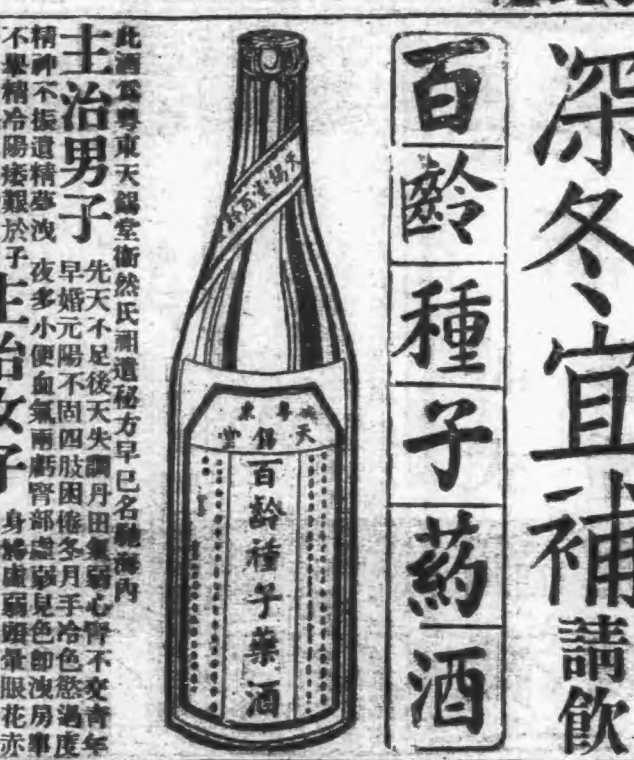 深冬宜補
請飲
百齡種子葯酒
天錫堂百齡
粵東
天錫堂
百齡種子藥酒
此酒為粵東天錫堂衛然氏祖遺秘方早已名馳海內
主治男子
先天不足後天失調丹田氣弱心腎不交青年
早婚元陽不固四肢困倦冬月手冷色慾過度
夜多小便血氣兩虧腎部虛弱見色即洩房事
精神不振遺精夢洩
不舉精冷陽痿艱於子
主治女子
身體虛弱頭暈眼花赤